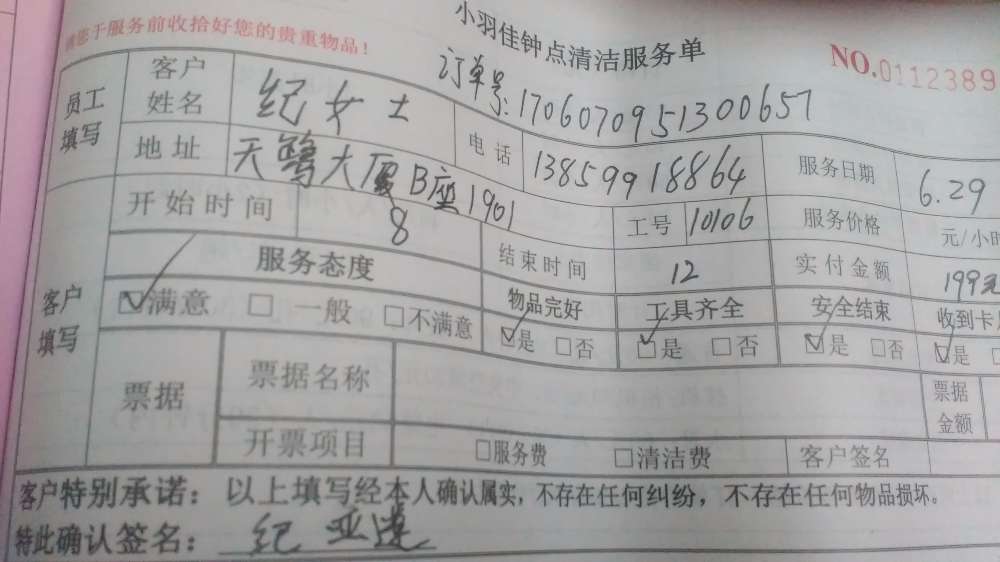 小羽佳钟点清洁服务单
请您于服务前收拾好您的贵重物品！
NO.0112389
订单号:1706070951300657
员工填写
客户姓名 纪女士 电话 13859918864 服务日期 6.29
地址 天鹭大厦B座1901 工号 10106 服务价格 元/小时
客户填写
开始时间 8 结束时间 12 实付金额 199元
服务态度 物品完好 工具齐全 安全结束 收到卡
☑满意 □一般 □不满意 ☑是 □否 ☑是 □否 ☑是 □否 ☑是
票据 票据名称 票据金额
开票项目 □服务费 □清洁费 客户签名
客户特别承诺：以上填写经本人确认属实，不存在任何纠纷，不存在任何物品损坏。
特此确认签名：纪亚莲